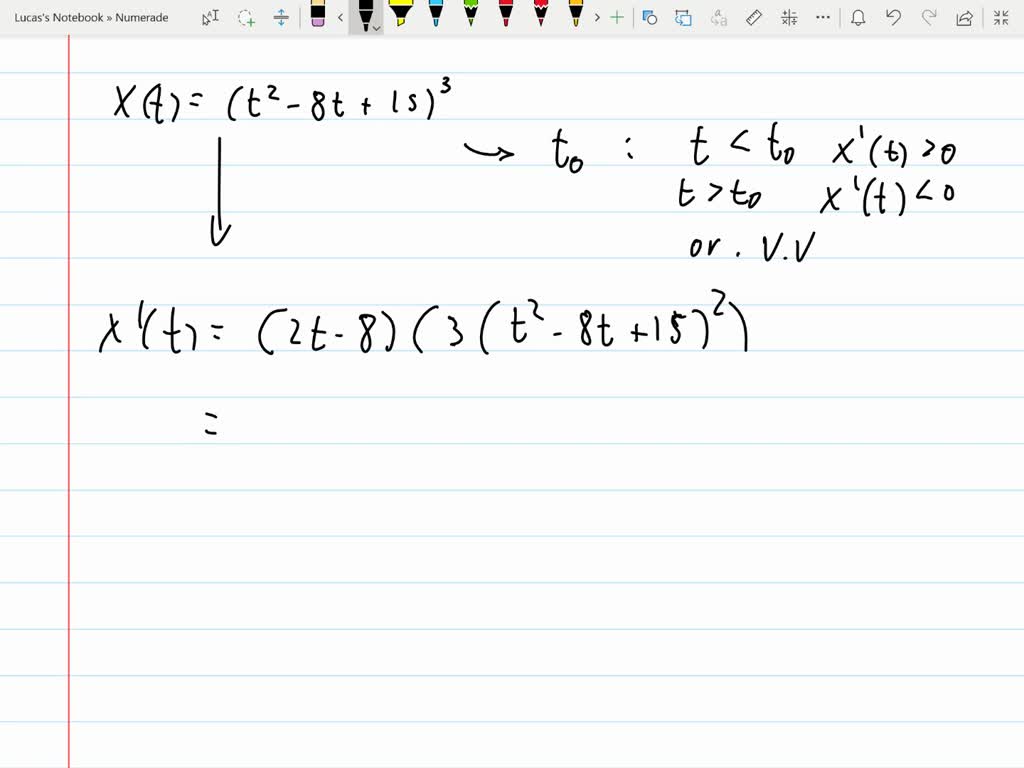 Lucas's Notebook » Numerade
X(t) = (t² - 8t + 15)³
→ t₀ : t < t₀ x'(t) > 0
t > t₀ x'(t) < 0
or . V.V
x'(t) = (2t - 8)(3(t² - 8t + 15)²)
=